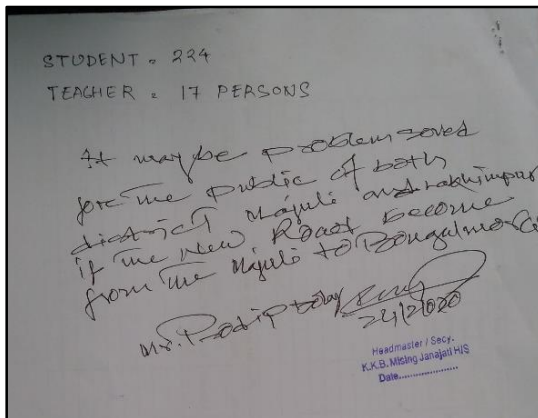 STUDENT = 224
TEACHER = 17 PERSONS
It may be problem soved
for the public of both
district Majuli and Lakhimpur
if the New Road become
from the Majuli to Bongalmora
Mr.
24/2/2020
Headmaster / Secy.
K.K.B. Mising Janajati H/S
Date....................